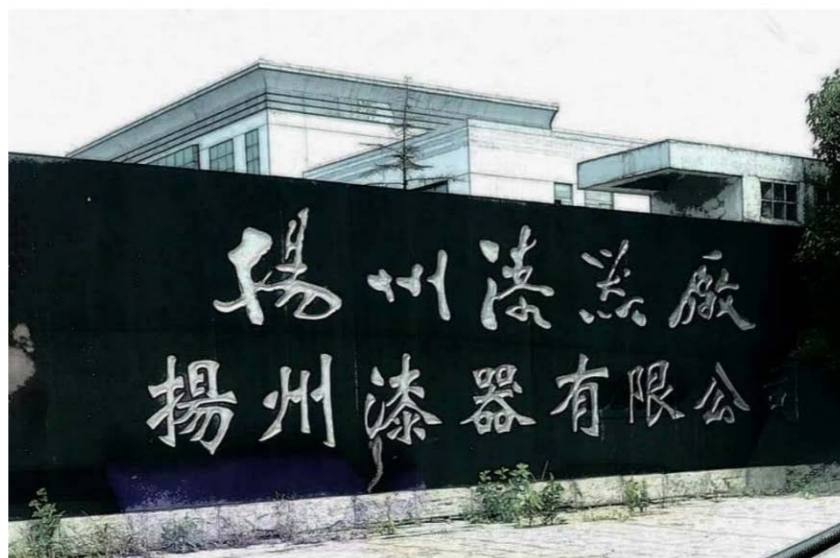 揚州漆器廠
揚州漆器有限公司